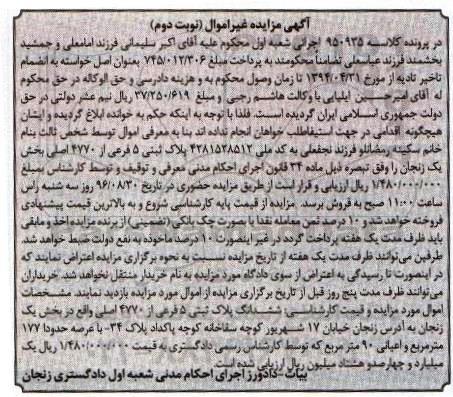 آگهی مزایده غیراموال (نوبت دوم)
در پرونده کلاسسه ۹۵۰۹۳۵ اجرائی شعبه اول محکوم علیه آقای اکبر سلیمانی فرزند امامعلی و جمشید
بخشمند فرزند عباسعلی تضامناً محکومند به پرداخت مبلغ ۷۴۵/۰۱۲/۳۰۶ بعنوان اصل خواسته به انضمام
تاخیر تادیه از مورخ ۱۳۹۴/۰۴/۳۱ تا زمان وصول محکوم به و هزینه دادرسی و حق الوکاله در حق محکوم
له آقای امیرحسین ایلیایی با وکالت هاشم رجبی و مبلغ ۳۷/۲۵۰/۶۱۹ ریال نیم عشر دولتی در حق
دولت جمهوری اسلامی ایران گردیده است. فلذا با توجه به اینکه حکم به خوانده ابلاغ گردیده و ایشان
هیچگونه اقدامی در جهت استیفاطلب خواهان انجام نداده اند بنا به معرفی اموال توسط شخص ثالث بنام
خانم سکینه رمضانلو فرزند نجفعلی به کد ملی ۴۲۸۱۵۲۸۵۱۲ پلاک ثبتی ۵ فرعی از ۴۷۷۰ اصلی بخش
یک زنجان را وفق تبصره ذیل ماده ۳۴ قانون اجرای احکام مدنی معرفی و توقیف و توسط کارشناس بمبلغ
۱/۴۸۰/۰۰۰/۰۰۰ ریال ارزیابی و قرار است از طریق مزایده حضوری در تاریخ ۹۶/۰۸/۳۰ روز سه شنبه راس
ساعت ۱۱:۰۰ صبح به فروش برسد. مزایده از قیمت پایه کارشناسی شروع و به بالاترین قیمت پیشنهادی
فروخته خواهد شد و ۱۰ درصد ثمن معامله نقدا یا بصورت چک بانکی(تضمینی) از برنده مزایده اخذ و مابقی
باید ظرف مدت یک هفته پرداخت گردد در غیر اینصورت ۱۰ درصد ماخوذه به نفع دولت ضبط خواهد شد.
طرفین می‌توانند ظرف مدت یک هفته از تاریخ مزایده نسبت به نحوه برگزاری مزایده اعتراض نمایند که
در اینصورت تا رسیدگی به اعتراض از سوی دادگاه مورد مزایده به نام خریدار منتقل نخواهد شد. خریداران
می‌توانند ظرف مدت پنج روز قبل از تاریخ برگزاری مزایده از اموال مورد مزایده بازدید نمایند. مشخصات
اموال مورد مزایده و قیمت کارشناسی: ششدانگ پلاک ثبتی ۵ فرعی از ۴۷۷۰ اصلی واقع در بخش یک
زنجان به آدرس زنجان خیابان ۱۷ شهریور کوچه سقاخانه کوچه پاکداد پلاک ۳۴- با عرصه حدودا ۱۷۷
مترمربع و اعیانی ۹۰ متر مربع که توسط کارشناس رسمی دادگستری به قیمت ۱/۴۸۰/۰۰۰/۰۰۰ ریال یک
میلیارد و چهارصد و هشتاد میلیون ریال ارزیابی شده است.
بیات - دادورز اجرای احکام مدنی شعبه اول دادگستری زنجان